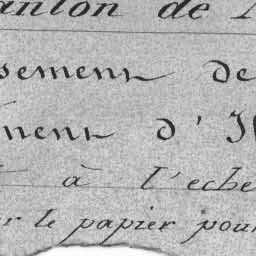 anton de
sement de
ment d'
à l'eche
r le papier pour